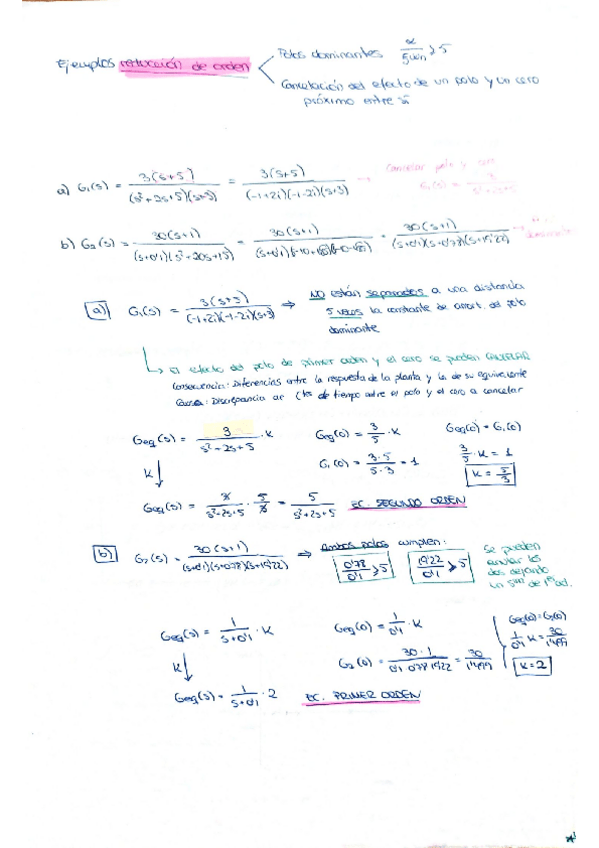 Ejemplos reducción de orden
Polos dominantes α/ξωn > 5
Cancelación del efecto de un polo y un cero
próximo entre sí
a) G₁(s) = 3(s+5)/(s²+2s+5)(s+3) = 3(s+5)/(-1+2i)(-1-2i)(s+3) → Cancelar polo y cero
G₁(s) = 3/s²+2s+5
b) G₂(s) = 30(s+1)/(s+0'1)(s²+20s+15) = 30(s+1) = 30(s+1)/(s+0'1)(s+0'78)(s+19'22)
a) G₁(s) = 3(s+5)/(-1+2i)(-1-2i)(s+3) ⇒ NO están separados a una distancia
5 veces la constante de amort. del polo
dominante
↳ El efecto del polo de primer orden y el cero se pueden CANCELAR
Consecuencia: Diferencias entre la respuesta de la planta y la de su equivalente
Causa: Discrepancia de tiempo entre el polo y el cero a cancelar
Geq(s) = 3/s²-2s+5 · K   Geq(0) = 3/5 · K   Geq(0) = G₁(0)
K ↓   G₁(0) = 3·5/5·3 = 1   3/5 · K = 1
K = 5/3
Geq(s) = 3/s²-2s+5 · 5/3 = 5/s²+2s+5   EC. SEGUNDO ORDEN
b) G₂(s) = 30(s+1)/(s+0'1)(s+0'78)(s+19'22) ⇒ Ambos polos cumplen:
0'78/0'1 > 5   19'22/0'1 > 5
Se pueden
anular los
dos dejando
un de 1er
Geq(s) = 1/s+0'1 · K   Geq(0) = 1/0'1 · K   Geq(0) = G₂(0)
K ↓   G₂(0) = 30·1/0'1 0'78 19'22 = 30/1'499   1/0'1 K = 30/1'499
K = 2
Geq(s) = 1/s+0'1 · 2   EC. PRIMER ORDEN